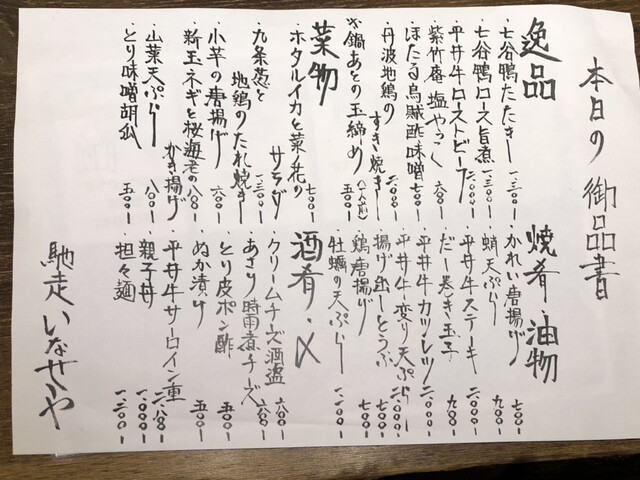 本日の御品書
逸品
・七谷鴨たたきー 一、三〇〇ー
・七谷鴨ロース旨煮 一、三〇〇ー
・平井牛ローストビーフ 二、〇〇〇ー
・紫竹庵 塩やっこ 六〇〇ー
・ほたる烏賊酢味噌 七〇〇ー
・丹波地鶏の
すきき焼きー 二、〇〇〇ー
〆鍋あとの玉締め(一人前) 五〇〇ー
菜物
・ホタルイカと菜ノ花の
サラダ 七〇〇ー
・九条葱と
地鶏のたれ焼きー 一、三〇〇ー
・小芋の唐揚げ 六〇〇ー
・新玉ネギと桜海老の
かき揚げ 八〇〇ー
・山菜天ぷらー 八〇〇ー
・とり味噌胡瓜 五〇〇ー
焼肴・油物
・かれい唐揚げ 七〇〇ー
・蛸天ぷらー 九〇〇ー
・平井牛ステーキ 二、〇〇〇ー
・だー巻き玉子 九〇〇ー
・平井牛カツレツ 二、〇〇〇ー
・平井牛変り天ぷらー 二、〇〇〇ー
・揚げ出ーとうふ 七〇〇ー
・鶏唐揚げ 七〇〇ー
・牡蠣の天ぷらー 一、〇〇〇ー
酒肴・〆
・クリームチーズ酒盗 六〇〇ー
・あさり時雨煮チーズ 六〇〇ー
・とり皮ポン酢 五〇〇ー
・ぬか漬け 五〇〇ー
・平井牛サーロイン重 二、八〇〇ー
・親子丼 一、〇〇〇ー
・担々麺 一、二〇〇ー
馳走いなせや